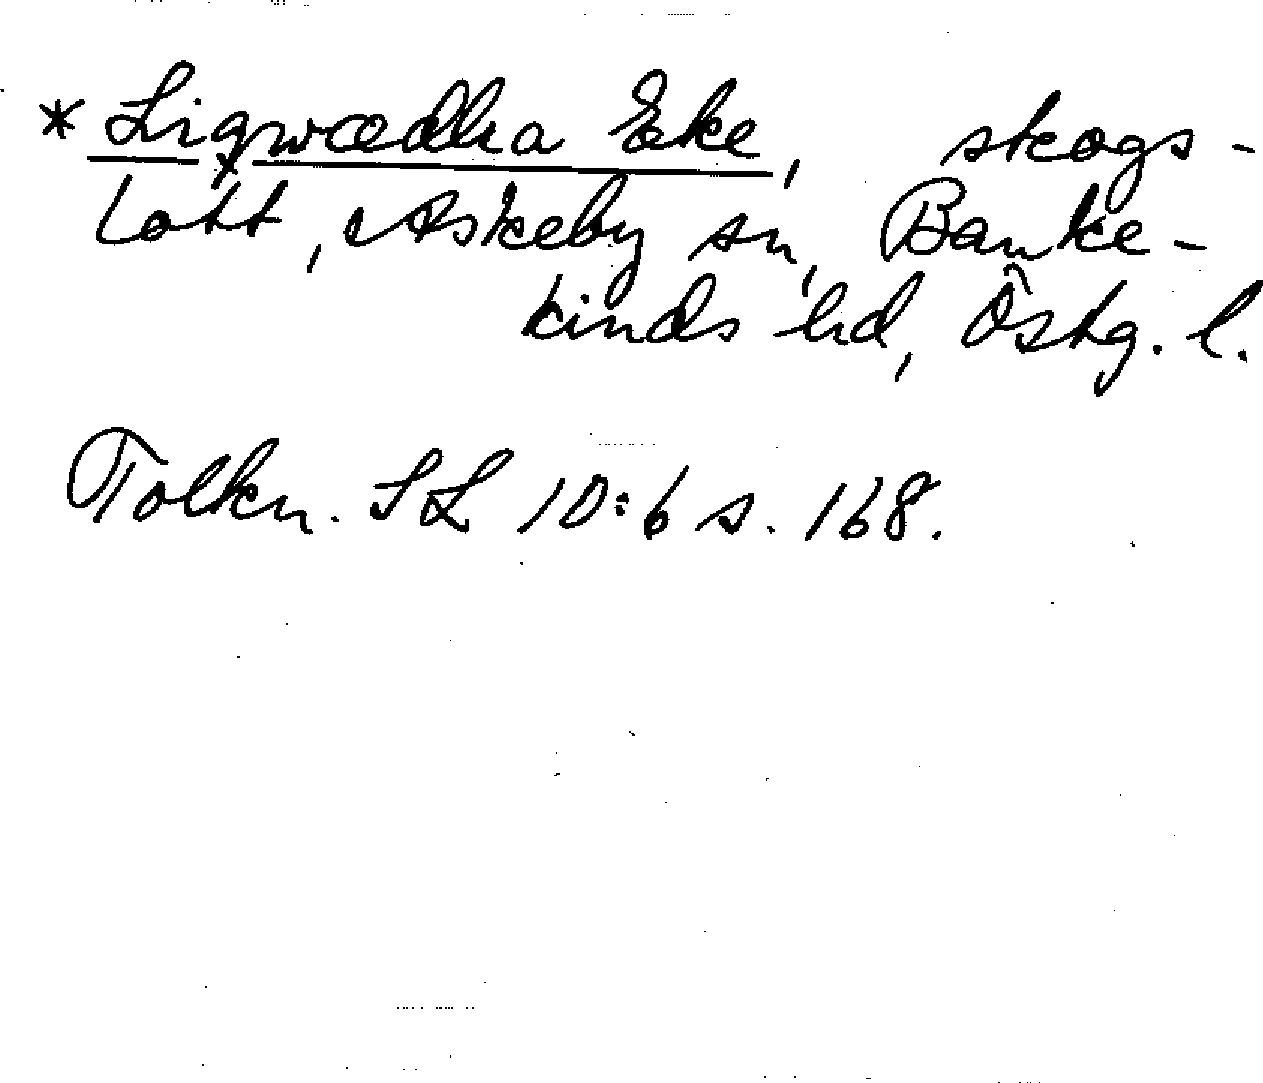 * Liqwædha Eke, skogs-
lott, Askeby sn, Banke-
kinds hd, Östg. l.
Tolkn. SL 10:6 s. 168.